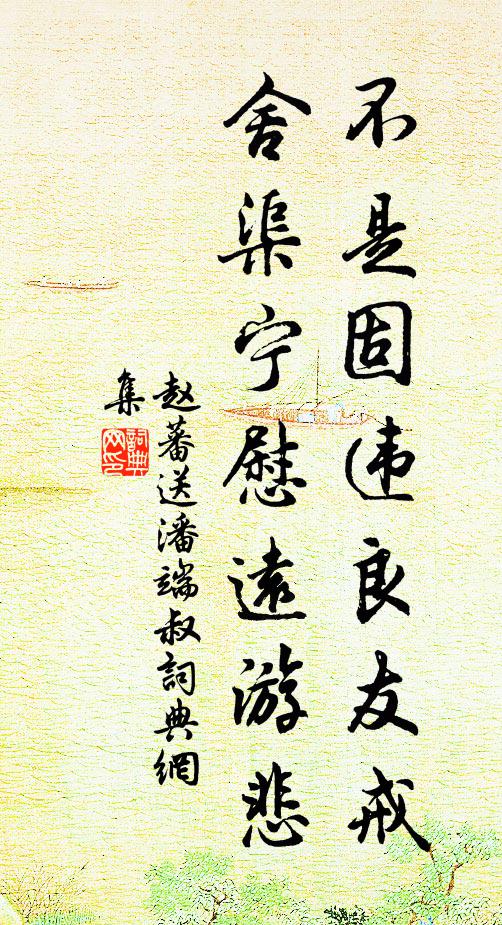 不是固违良友戒
舍渠宁慰遠游悲
赵蕃送潘端叔詞典網
集
詞典網印